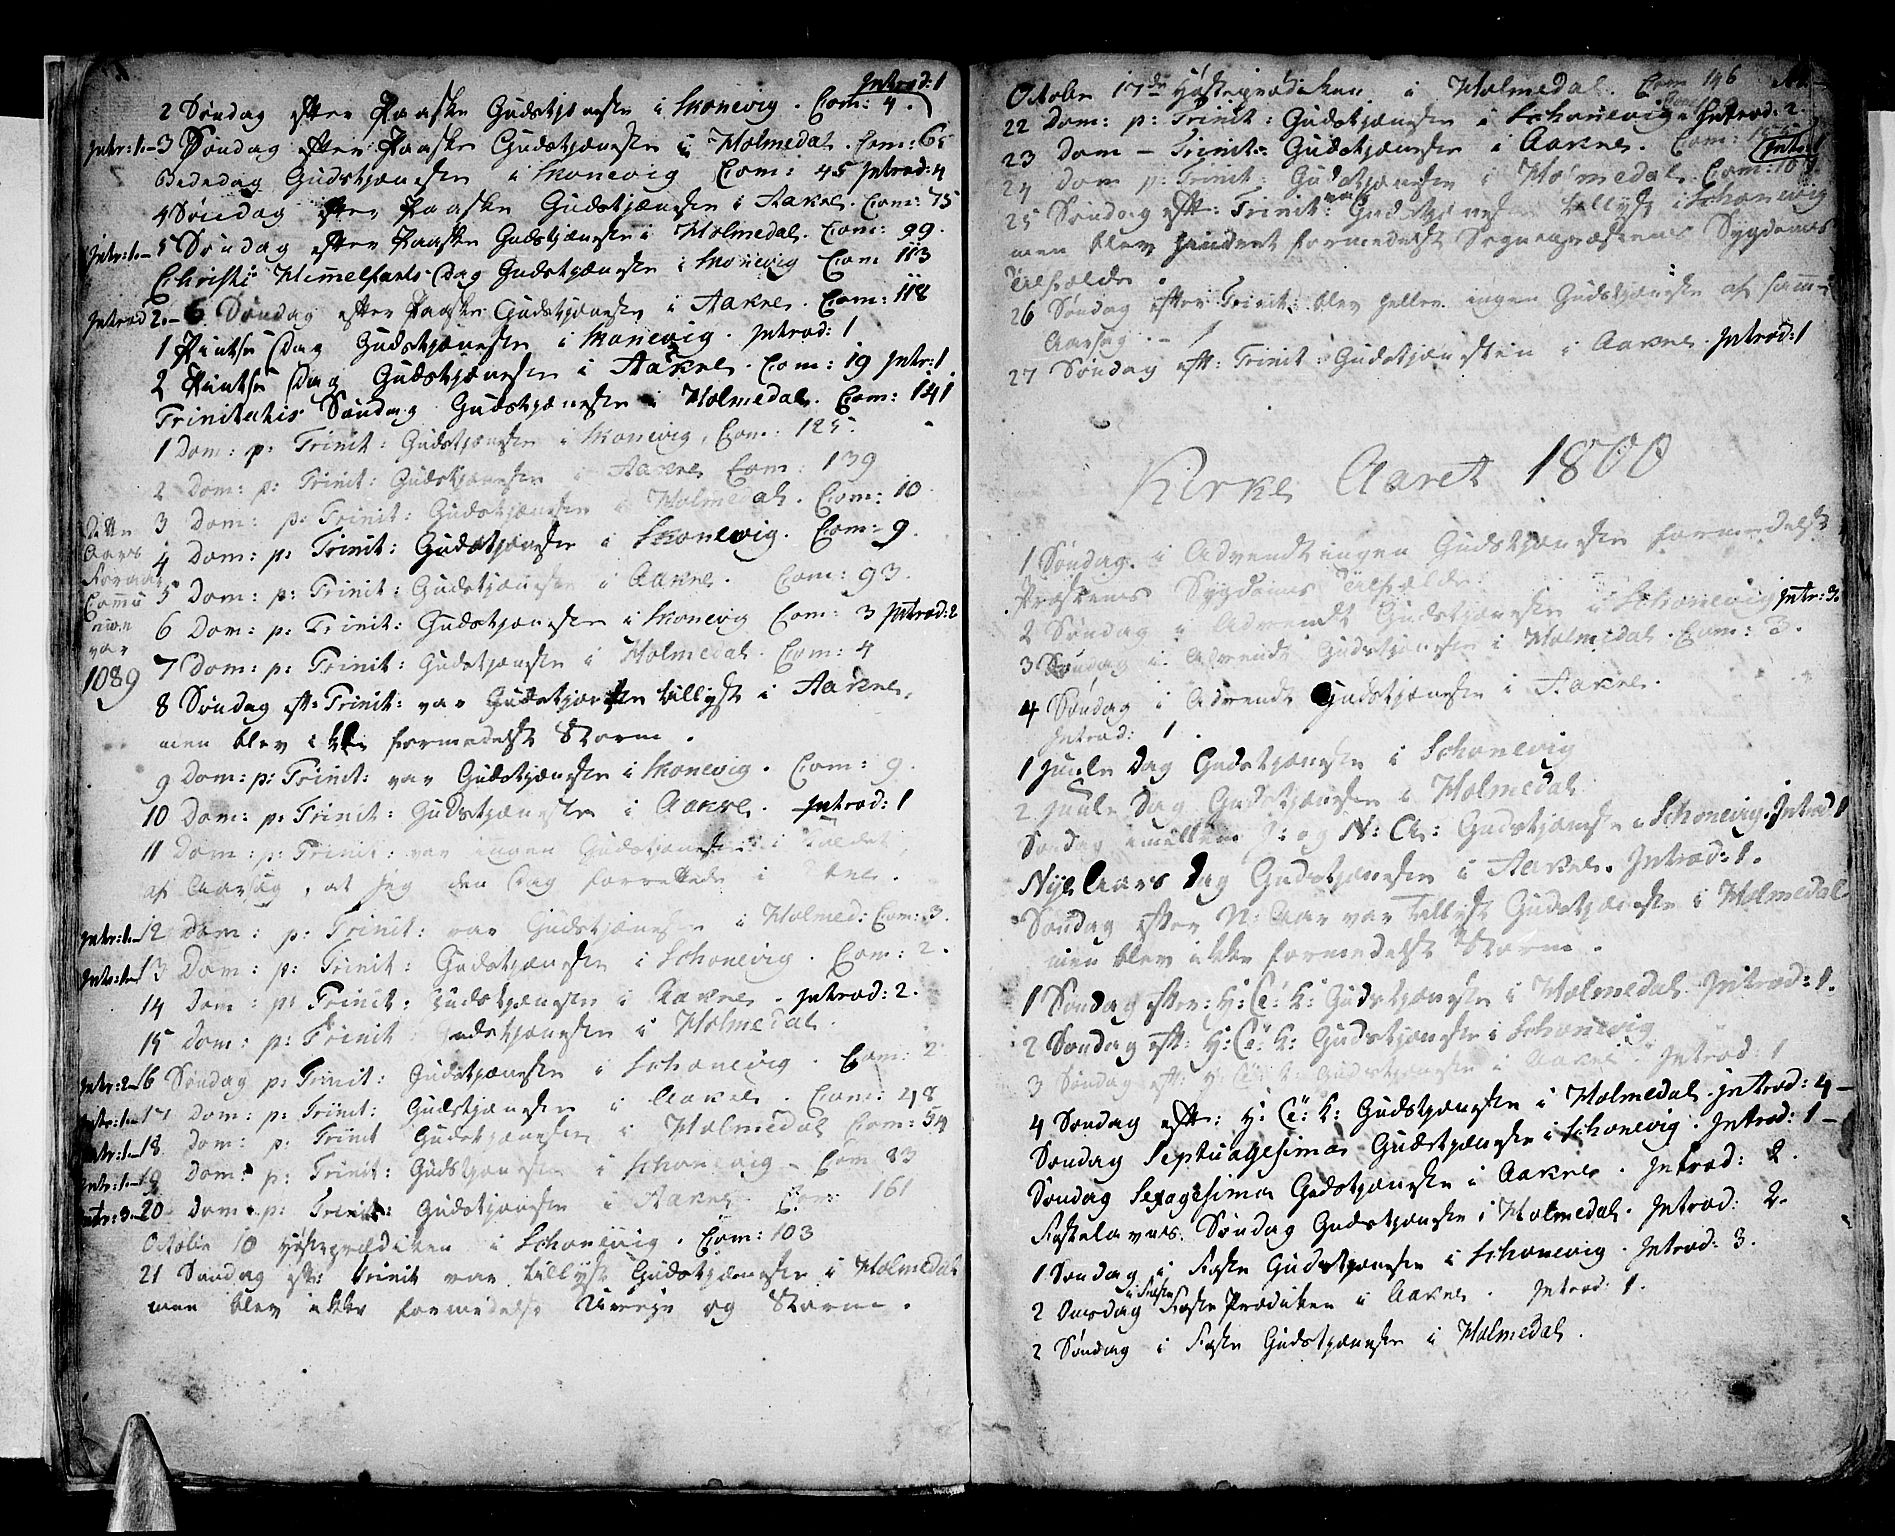 Introd: 1
2 Søndag efter Paaske Gudstjeneste i Skonevig. Com: 4.
Intr: 1.- 3 Søndag efter Paaske Gudstjæneste i Holmedal. Com: 65
Bededag Gudstjæneste i Skonevig Com: 45 Introd: 4
4 Søndag efter Paaske Gudstjæneste i Aakre. Com: 75
Intr: 1.- 5 Søndag efter Paaske Gudstjæneste i Holmedal. Com: 99.
Christi Himmelfarts Dag Gudstjæneste i Skonevig Com 113
Introd 2.- 6. Søndag efter Paaske Gudstjæneste i Aakre. Com: 118
1 Pintse Dag Gudstjæneste i Skonevig. Introd: 1
2 Pintse Dag Gudstjæneste i Aakre. Com: 19 Intr: 1
Trinitatis Søndag Gudstjæneste i Holmedal. Com: 141
1 Dom: p: Trinit: Gudstjæneste i Skonevig. Com: 125.
2 Dom: p: Trinit: Gudstjæneste i Aakre Com: 139
3 Dom: p: Trinit: Gudstjæneste i Holmedal. Com: 10
4 Dom: p: Trinit: Gudstjæneste i Skonevig. Com: 9.
5 Dom: p: Trinit: Gudstjæneste i Aakre. Com: 93.
6 Dom: p: Trinit: Gudstjæneste i Skonevig Com: 3 Introd: 2
7 Dom: p: Trinit: Gudstjæneste i Holmedal. Com: 4
Dette
Aars
Foraar
Commu
nion
var
1089
8 Søndag eft: Trinit: var Gudstjæneste tillyst i Aakre,
men blev ikke formedelst Storm.
9 Dom: p: Trinit: var Gudstjæneste i Skonevig. Com: 9.
10 Dom: p: Trinit: Gudstjæneste i Aakre. Introd: 1
11 Dom: p: Trinit: var ingen Gudstjæneste i Kaldet,
af Aarsag, at jeg den Dag forrettede i
Intr: 1.- 12 Dom: p: Trinit: var Gudstjæneste i Holmed: Com: 3.
Intr: 1.- 13 Dom: p: Trinit: Gudstjæneste i Schonevig. Com: 2.
14 Dom: p: Trinit: Gudstjæneste i Aakre. Introd: 2.
15 Dom: p: Trinit Gudstjæneste i Holmedal.
Intr: 2.- 16 Søndag p: Trinit: Gudstjæneste i Schonevig. Com: 2
Intr: 1.- 17 Dom: p: Trinit: Gudstjæneste i Aakre. Com: 48
Intr: 1.- 18 Dom: p: Trinit Gudstjæneste i Holmedal Com: 54
Intr: 1.- 19 Dom: p: Trinit: Gudstjæneste i Schonevig - Com 83
Intr: 3.- 20 Dom: p: Trinit: Gudstjæneste i Aakre Com: 161
Octobr 10 Høstprædiken i Schonevig. Com: 103
21 Søndag eft: Trinit var tillyst Gudstjæneste i Holmedal
men blev ikke formedelst Uveir og Storm.
October 17de Høstprædiken i Holmedal. Com 146
22 Dom: p: Trinit: Gudstjæneste i Schonevig. Introd: 2
23 Dom - Trinit: Gudstjæneste i Aakre. Com: Intr: 1
24 Dom p: Trinit: Gudstjæneste i Holmedal. Com:
25 Søndag eft: Trinit: var Gudstjæneste tillyst i Schonevig
men blev hindret formedelst Sognepræstens Sygdoms
Tilfælde.
26 Søndag efter Trinit: blev heller ingen Gudstjæneste af samme
Aarsag. -
27 Søndag eft: Trinit: Gudstjæneste i Aakre. Introd: 1
Kirke Aaret 1800
1 Søndag i Advendt ingen Gudstjæneste formedelst
Præstens Sygdoms Tilfælde.
2 Søndag i Advendt Gudstjæneste i Schonevig Intr: 3.
3 Søndag i Advendt Gudstjæneste i Holmedal. Com: 3.
4 Søndag i Advendt Gudstjæneste i Aakre.
Introd: 1.
1 Juule Dag Gudstjæneste i Schonevig
2 Juule Dag Gudstjæneste i Holmedal
Søndag imellem J: og N: A: Gudstjæneste i Schonevig. Introd 1
Nye Aars Dag Gudstjæneste i Aakre. Introd: 1.
Søndag efter N: Aar var tillyst Gudstjæneste i Holmedal
men blev ikke formedelst Storm.
1 Søndag efter: H: 3: K: Gudstjæneste i Holmedal. Introd: 1.
2 Søndag eft: H: 3: K: Gudstjæneste i Schonevig
3 Søndag eft: H: 3: K: Gudstjæneste i Aakre Introd: 1
4 Søndag efter: H: 3: K: Gudstjæneste i Holmedal. Introd: 4 -
Søndag Septuagesima Gudstjæneste i Schonevig. Introd: 1 -
Søndag Sexagesima Gudstjæneste i Aakre. Introd: 2.
Fastelavns Søndag Gudstjæneste i Holmedal. Introd: 2.
1 Søndag i Faste Gudstjæneste i Schonevig. Introd: 3.
2 Onsdag i Fasten Faste Prædiken i Aakre. Introd: 1.
2 Søndag i Faste Gudstjæneste i Holmedal.